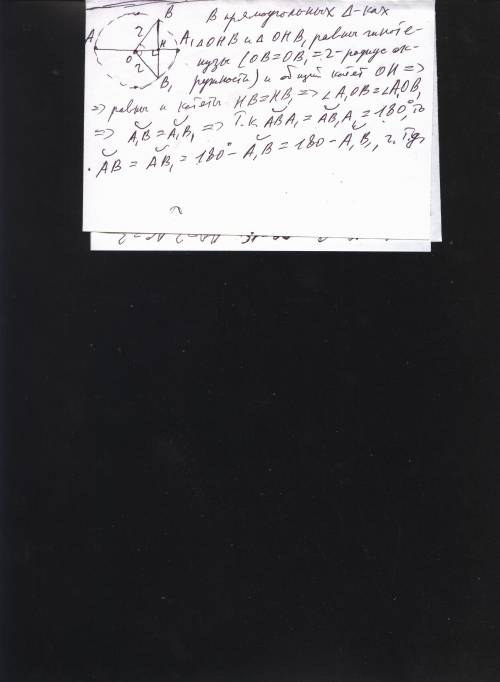 В прямоугольных Δ-ках
ΔOHB и ΔOHB₁ равны гипоте-
нузы (OB=OB₁=2-радиус ок-
ружность) и общий катет OH =>
=> равны и катеты HB=HB₁ => ∠A₁OB=∠A₁OB₁
=> A₁B=A₁B₁ => Т.к. ABA₁=AB₁A₁=180°, то
AB=AB₁=180°-A₁B=180-A₁B₁, ч.т.д.
A
B
A₁
B₁
O
H
2
2